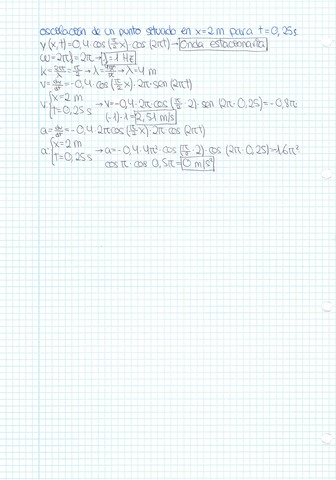 oscilación de un punto situado en x=2 m para t=0,25 s
y(x,t)=0,4·cos(π/2 x)·cos(2πt)→Onda estacionaria
ω=2πf=2π→f=1 Hz
k=2π/λ=π/2→λ=4π/π→λ=4 m
v=dy/dt=-0,4·cos(π/2 x)·2π·sen(2πt)
v{x=2 m
t=0,25 s →v=-0,4·2π·cos(π/2·2)·sen(2π·0,25)=-0,8π·
(-1)·1=2,51 m/s
a=dv/dt=-0,4·2πcos(π/2 x)·2π cos(2πt)
a{x=2 m
t=0,25 s →a=-0,4·4π²·cos(π/2·2)·cos(2π·0,25)=-1,6π²
cos π·cos 0,5π=0 m/s²